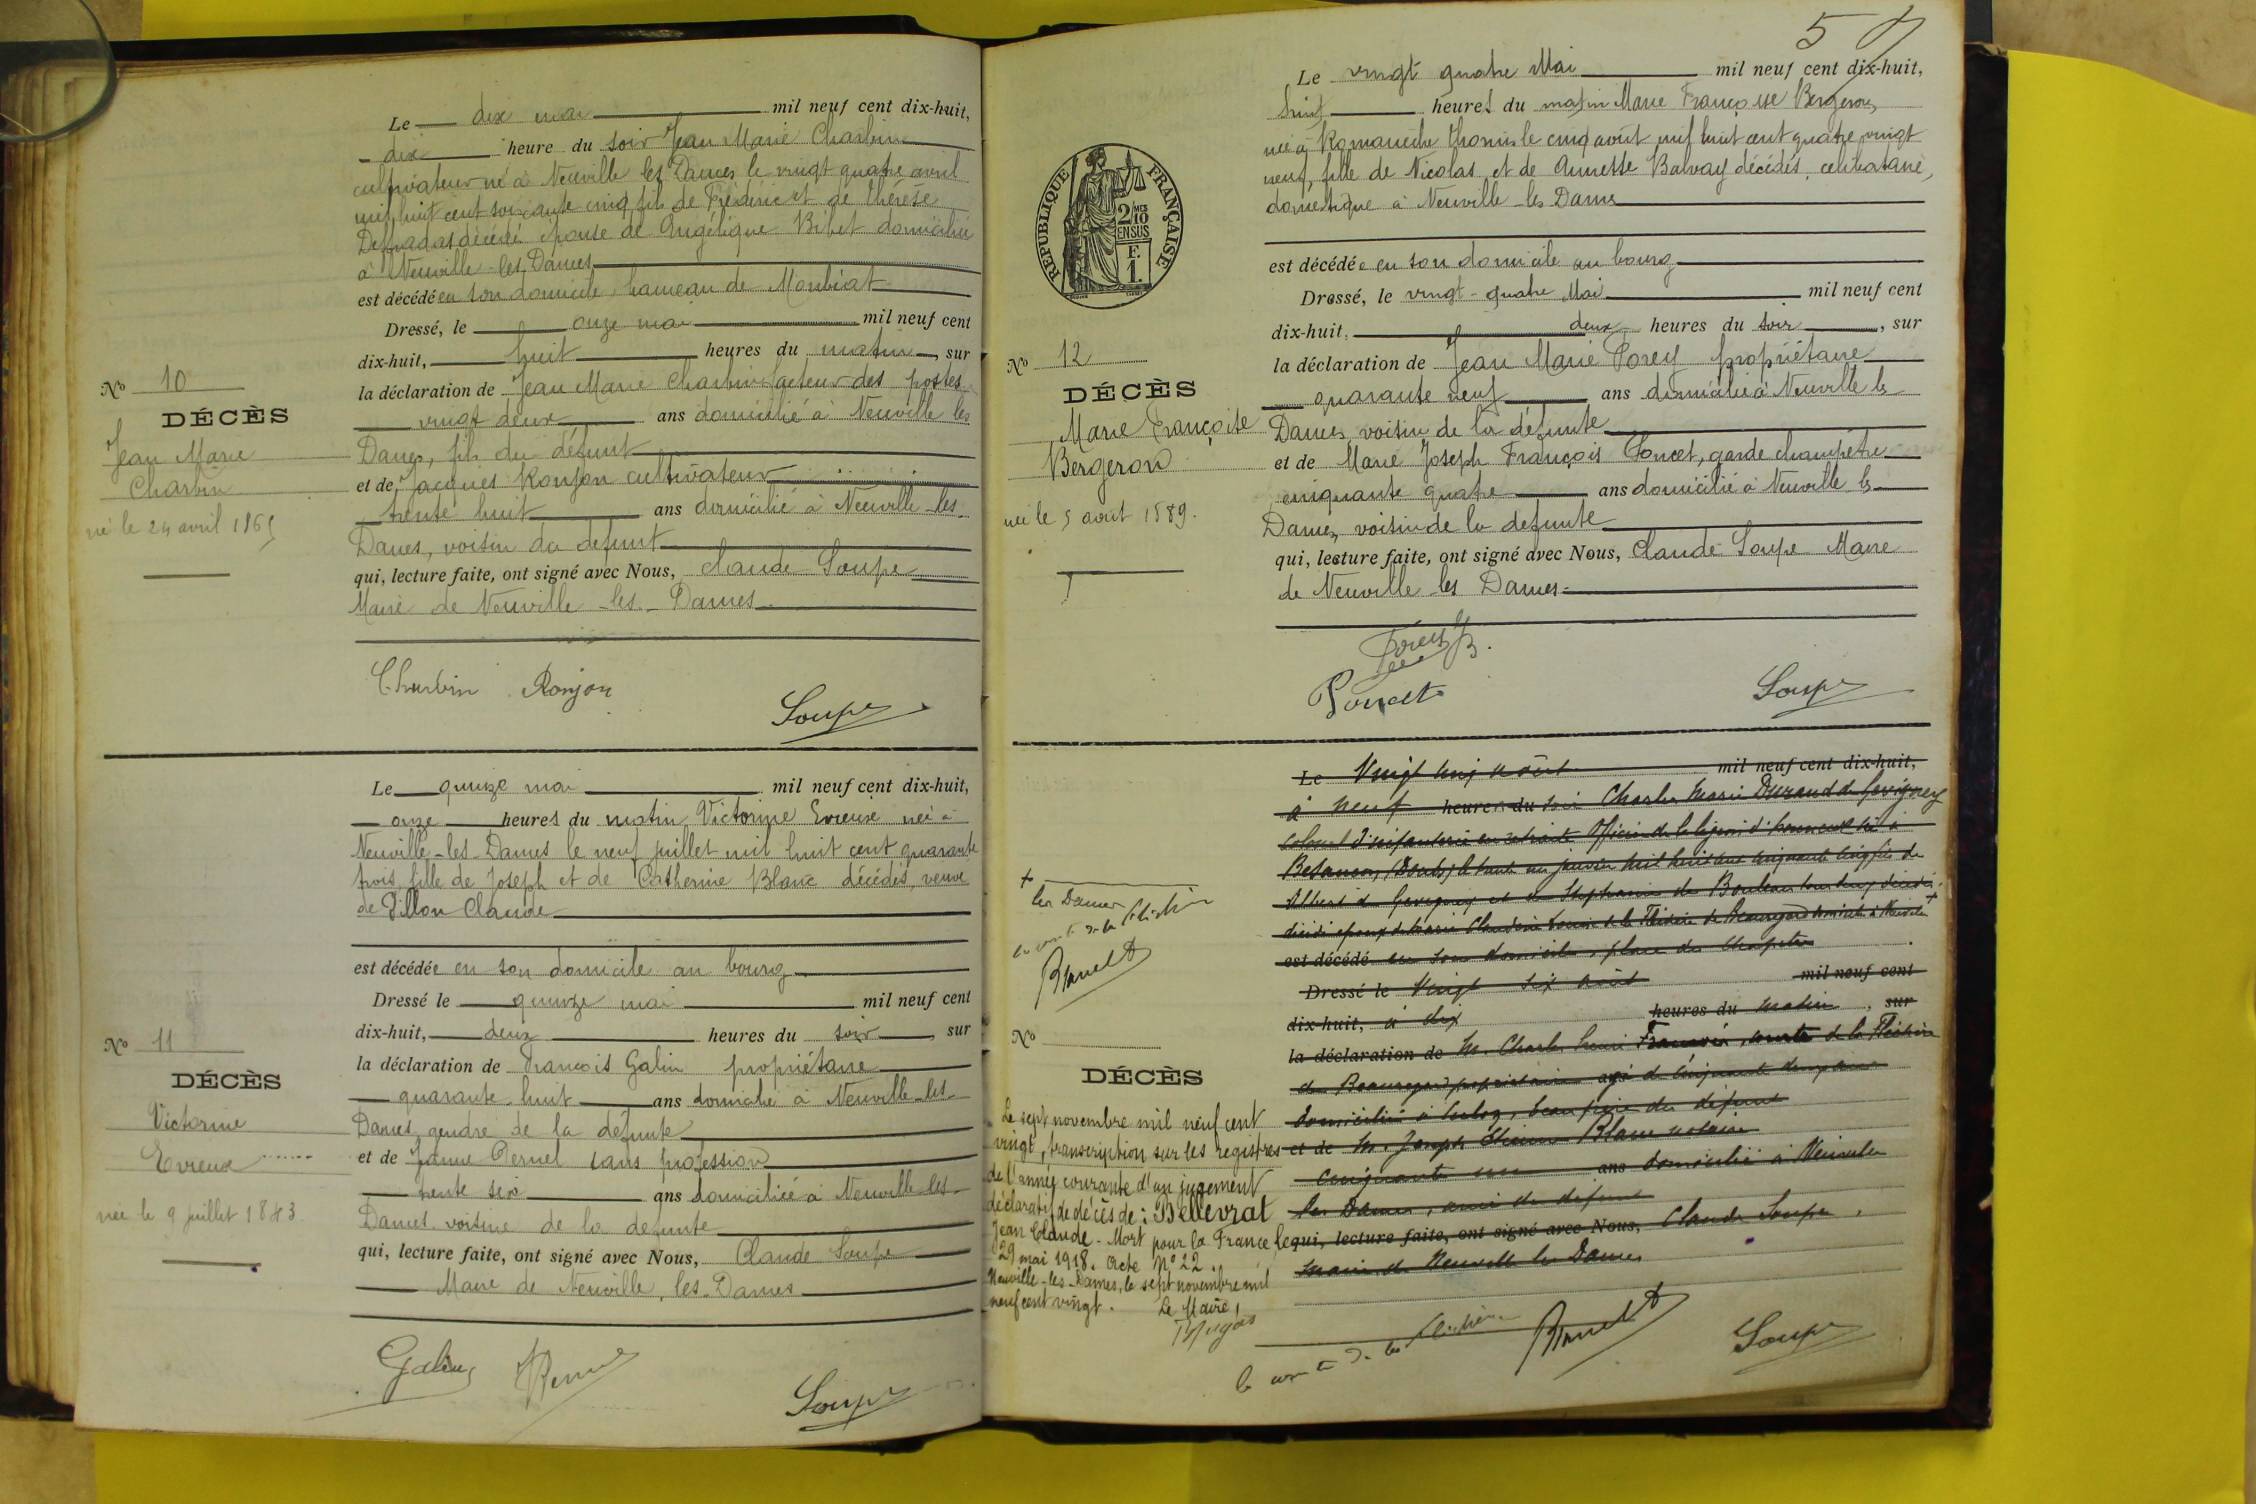 Le dix mai mil neuf cent dix-huit,
dix heure du soir Jean Marie Charbin
cultivateur né à Neuville les Dames le vingt quatre avril
mil huit cent soixante cinq fils de Frédéric et de Thérèse
décédé épouse de Angélique Bibet domicilié
à Neuville-les-Dames
est décédé en son domicile hameau de Monbiat
Dressé, le onze mai mil neuf cent
dix-huit, huit heures du matin, sur
la déclaration de Jean Marie Charbin facteur des postes
vingt deux ans domicilié à Neuville les
Dames, fils du défunt
et de Jacques Ronjon cultivateur
trente huit ans domicilié à Neuville-les-
Dames, voisin du défunt
qui, lecture faite, ont signé avec Nous, Claude Soupe
Maire de Neuville-les-Dames
No 10
DÉCÈS
Jean Marie
Charbin
né le 24 avril 1865
Charbin Ronjon
Soupe
Le quinze mai mil neuf cent dix-huit,
onze heures du matin Victorine Evieux née à
Neuville-les-Dames le neuf juillet mil huit cent quarante
trois, fille de Joseph et de Catherine Blanc décédés, veuve
de Pillon Claude
est décédée en son domicile au bourg
Dressé le quinze mai mil neuf cent
dix-huit, deux heures du soir, sur
la déclaration de François Galien propriétaire
quarante-huit ans domicilié à Neuville-les-
Dames, gendre de la défunte
et de Jeanne Pernel sans profession
trente six ans domiciliée à Neuville-les-
Dames voisine de la défunte
qui, lecture faite, ont signé avec Nous, Claude Soupe
Maire de Neuville, les-Dames
No 11
DÉCÈS
Victorine
Evieux
née le 9 juillet 1843
Galien
Soupe
5
Le vingt quatre Mai mil neuf cent dix-huit,
huit heures du matin Marie Françoise Bergeron,
née à Romanèche Thorins le cinq août mil huit cent quatre vingt
neuf, fille de Nicolas et de Annette Balvay décédés, célibataire,
domestique à Neuville-les Dames
est décédée en son domicile au bourg
Dressé, le vingt-quatre Mai mil neuf cent
dix-huit, deux heures du soir, sur
la déclaration de Jean Marie Forey propriétaire
quarante neuf ans domicilié à Neuville les
Dames, voisin de la défunte
et de Marie Joseph François Poncet, garde champêtre
cinquante quatre ans domicilié à Neuville les
Dames, voisin de la défunte
qui, lecture faite, ont signé avec Nous, Claude Soupe Maire
de Neuville les Dames
RÉPUBLIQUE FRANÇAISE
2/10 MES
EN SUS
F.
1
No 12
DÉCÈS
Marie Françoise
Bergeron
née le 5 août 1889.
Forey
Poncet
Soupe
Le Vingt cinq août mil neuf cent dix-huit,
à neuf heures du soir Charles Marie Durand de Gevigney
colonel d'infanterie en retraite officier de la légion d'honneur né à
Besançon, (Doubs) le trente un janvier mil huit cent cinquante cinq fils de
Albert de Gevigney et de Stéphanie de tous deux décédés
époux de Marie Claudine Louise de la Fléchère de Beauregard domicilié à Neuville +
est décédé en son domicile, place du Chapitre
Dressé le Vingt six août mil neuf cent
dix-huit, à dix heures du matin, sur
la déclaration de M. Charles Henri François, comte de la Fléchère
de Beauregard propriétaire agé de cinquante ans
domicilié à, beau frère du défunt
et de M. Joseph Blanc notaire
cinquante ans domicilié à Neuville
les Dames, ami du défunt
qui, lecture faite, ont signé avec Nous, Claude Soupe,
maire de Neuville les Dames
+ les Dames
le comte de la Fléchère
No
DÉCÈS
Le sept novembre mil neuf cent
vingt, transcription sur les registres
de l'année courante d'un jugement
déclaratif de décès de : Bellevrat
Jean Claude - Mort pour la France le
29 mai 1918. Acte No 22.
Neuville-les-Dames, le sept novembre mil
neuf cent vingt. Le Maire,
le comte de la Fléchère
Soupe